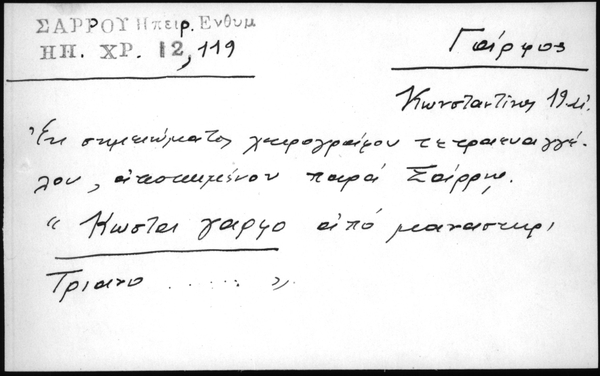 ΣΑΡΡΟΥ Ηπειρ. Ενθυμ
ΗΠ. ΧΡ. 12, 119
Γάρφος
Κωνσταντίνος 19 αἰ.
Ἐκ σημειώματος χειρογράφου τετραευαγγέ-
λου, ἀποκειμένου παρά Σάρρῳ.
"Κωσται γαρφο ἀπό μαναστιρι
Τριανο ...... "